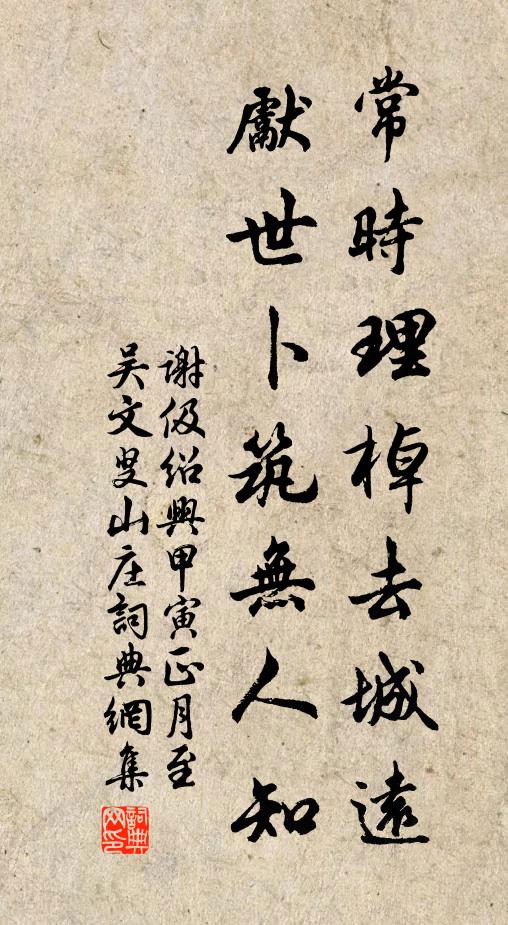 常時理棹去城遠
厭世卜筑無人知
謝伋紹興甲寅正月至
吴文叟山庄詞典網集
詞典网印